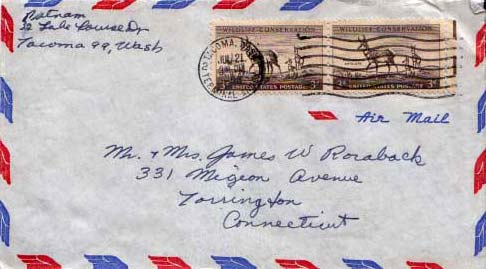 Putnam
Lake Louise Dr
Tacoma 99, Wash
TACOMA, WASH.
JUL 21
WILDLIFE CONSERVATION
WILDLIFE CONSERVATION
3¢ UNITED STATES POSTAGE
3¢ UNITED STATES POSTAGE
Air Mail
Mr. & Mrs. James W Roraback
331 Migeon Avenue
Torrington
Connecticut